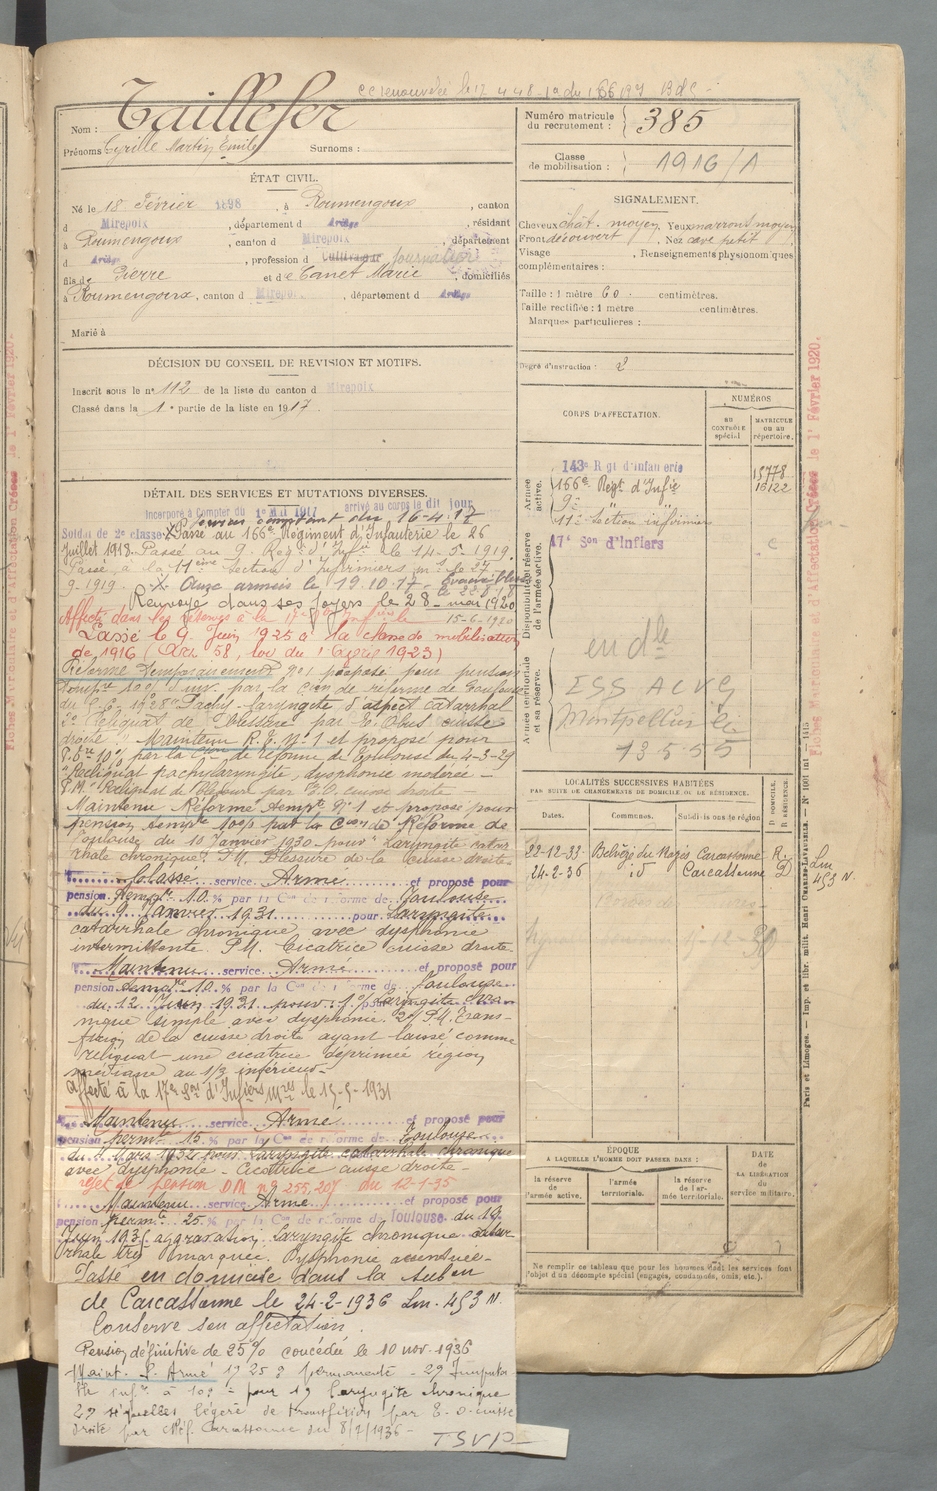 CC renouvelée le 17 4 48
Taillefer
Nom :
Prénoms Cyrille Martin Emile Surnoms :
ÉTAT CIVIL.
Né le 18 Février 1898, à Roumengoux, canton
d Mirepoix, département d Ariège, résidant
à Roumengoux, canton d Mirepoix, département
d Ariège, profession d Cultivateur journalier
fils de Pierre et de Canet Marie, domiciliés
à Roumengoux, canton d Mirepoix, département d Ariège
Marié à
DÉCISION DU CONSEIL DE REVISION ET MOTIFS.
Inscrit sous le n° 112 de la liste du canton d Mirepoix
Classé dans la 1e partie de la liste en 1917.
DÉTAIL DES SERVICES ET MUTATIONS DIVERSES.
Incorporé à compter du arrivé au corps le dit jour
16-4-17
Soldat de 2e classe Passé au 166e Régiment d'Infanterie le 26
Juillet 1918. Passé au 9e Régt d'Infie le 14-5-1919.
Passé à la 11ème Section d'Infirmiers mres le 27
9-1919. X Aux armées le 19.10.17 -
Renvoyé dans ses foyers le 28 mai 1920
Affecté dans les réserves à la 17e 15-6-1920
Passé le 9 Juin 1925 à la classe de mobilisation
de 1916 (Art 58, loi du 1 Avril 1923)
Réformé temporairement n° 1 proposé pour pension
par la Con de réforme de Toulouse
Pachy-laryngite d'aspect catarrhal
2° Reliquat de blessure par E. Obus cuisse
droite. Maintenu R.T. N° 1 et proposé pour
P. tre 10% par la Con de réforme de Toulouse du 4-3-29
Reliquat pachylaryngite, dysphonie modérée -
P.M. Reliquat de blessure par E.O. cuisse droite -
Maintenu Réformé tempre N° 1 et proposé pour
pension tempre 10% par la Con de Réforme de
Toulouse du 10 Janvier 1930 pour Laryngite catar
rhale chronique. P.M. Blessure de la cuisse droite
Classé service Armé et proposé pour
pension tempre 10 % par la Con de réforme de Toulouse
du 9 Janvier 1931 pour Laryngite
catarrhale chronique avec dysphonie
intermittente. P.M. Cicatrice cuisse droite.
Maintenu service Armé et proposé pour
pension tempre 10 % par la Con de réforme de Toulouse
du 12 Juin 1931 pour : 1° Laryngite chro
nique simple avec dysphonie. 2° P.M. Trans-
fixion de la cuisse droite ayant laissé comme
reliquat une cicatrice déprimée région
médiane au 1/3 inférieur.
Affecté à la 17e Son d'Infiers Mres le 15-5-1931
Maintenu service Armé et proposé pour
pension permte 15 % par la Con de réforme de Toulouse
du Mars 1934 pour Laryngite catarrhale chronique
avec dysphonie - Cicatrice cuisse droite -
rejet de pension DM n° 255,207 du 12-1-35
Maintenu service Armé et proposé pour
pension permte 25 % par la Con de réforme de Toulouse du 19
Juin 1935 aggravation Laryngite chronique catar
rhale très marquée. Dysphonie accentuée -
Passé en domicile dans la subon
de Carcassonne le 24-2-1936 Lm. 453 N.
Conserve son affectation.
Pension définitive de 25% concédée le 10 nov. 1936
Maint. S. Armé 1° 25% permanente - 2°
infre à 10% = pour 1° laryngite chronique
2° séquelles légères de transfixion par E. O. cuisse
droite par Carcassonne du 8/7/1936 -
TSVP
Numéro matricule
du recrutement : 385
Classe
de mobilisation : 1916/1
SIGNALEMENT.
Cheveux chât. moyen, Yeux marrons moyen
Front découvert, Nez cave petit
Visage , Renseignements physionomiques
complémentaires :
Taille : 1 mètre 60 centimètres.
Taille rectifiée : 1 mètre centimètres.
Marques particulières :
Degré d'instruction : 2
CORPS D'AFFECTATION.
NUMÉROS
AU CONTRÔLE spécial
MATRICULE ou au répertoire.
Armée active.
143e Rgt d'Infanterie 15778
166e Régt d'Infie 16122
9e
11e Section infirmiers
Disponibilité et réserve de l'armée active.
17e Son d'Infiers
en dle
Armée territoriale et sa réserve.
ESS ACVG
Montpellier le
13-5-55
LOCALITÉS SUCCESSIVES HABITÉES
PAR SUITE DE CHANGEMENTS DE DOMICILE OU DE RÉSIDENCE.
Dates. Communes. Subdivisions de région D. DOMICILE. R. RÉSIDENCE.
22-12-33 Belvèze du Razès Carcassonne R.
24-2-36 id Carcassonne D
Lm
453 N.
ÉPOQUE
À LAQUELLE L'HOMME DOIT PASSER DANS :
la réserve de l'armée active.
l'armée territoriale.
la réserve de l'armée territoriale.
DATE de LA LIBÉRATION du service militaire.
Ne remplir ce tableau que pour les hommes dont les services font
l'objet d'un décompte spécial (engagés, condamnés, omis, etc.).
Fiches Matriculaire et d'Affectation Créées le 1er Février 1920.
Paris et Limoges. — Imp. et libr. milit. Henri Charles-Lavauzelle.
Fiches Matriculaire et d'Affectation Créées le 1er Février 1920.